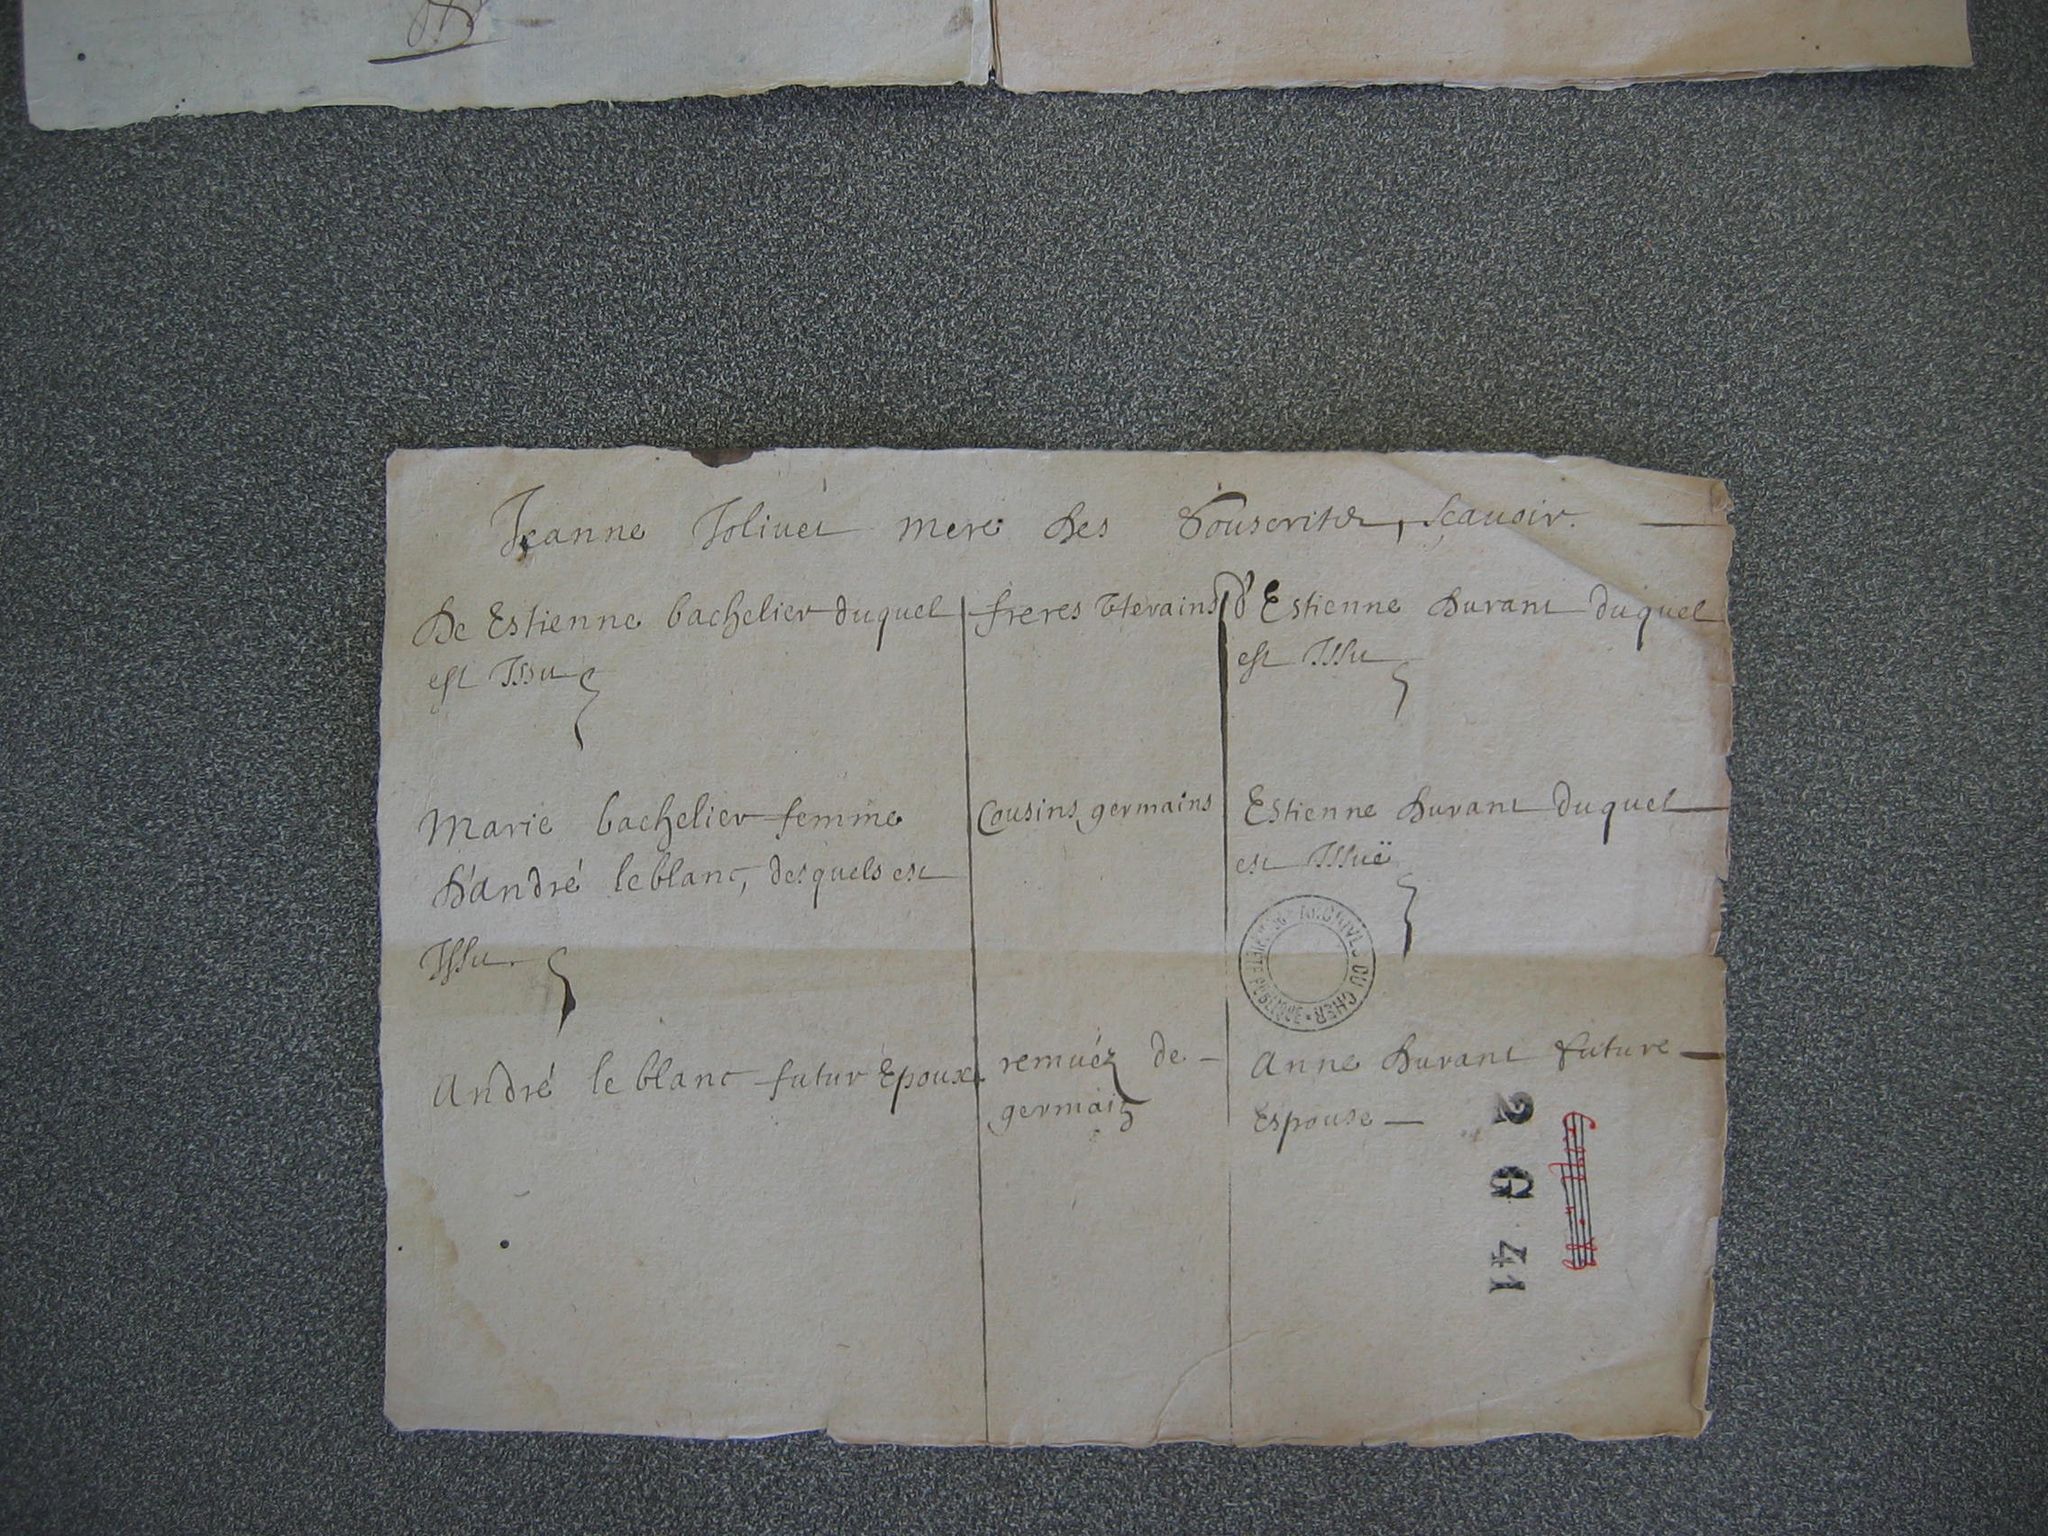 Jeanne Jolivet mere des Souscrits, sçauoir.
De Estienne bachelier duquel
est Issu
freres Vterains
d'Estienne Durant duquel
est Issu
Marie bachelier femme
d'André leblanc, desquels est
Issu
Cousins germains
Estienne Durant duquel
est Issuë
André leblanc futur Epoux
remuéz de
germain
Anne Durant future
Espouse
ARCHIVES DU CHER
2 G 41